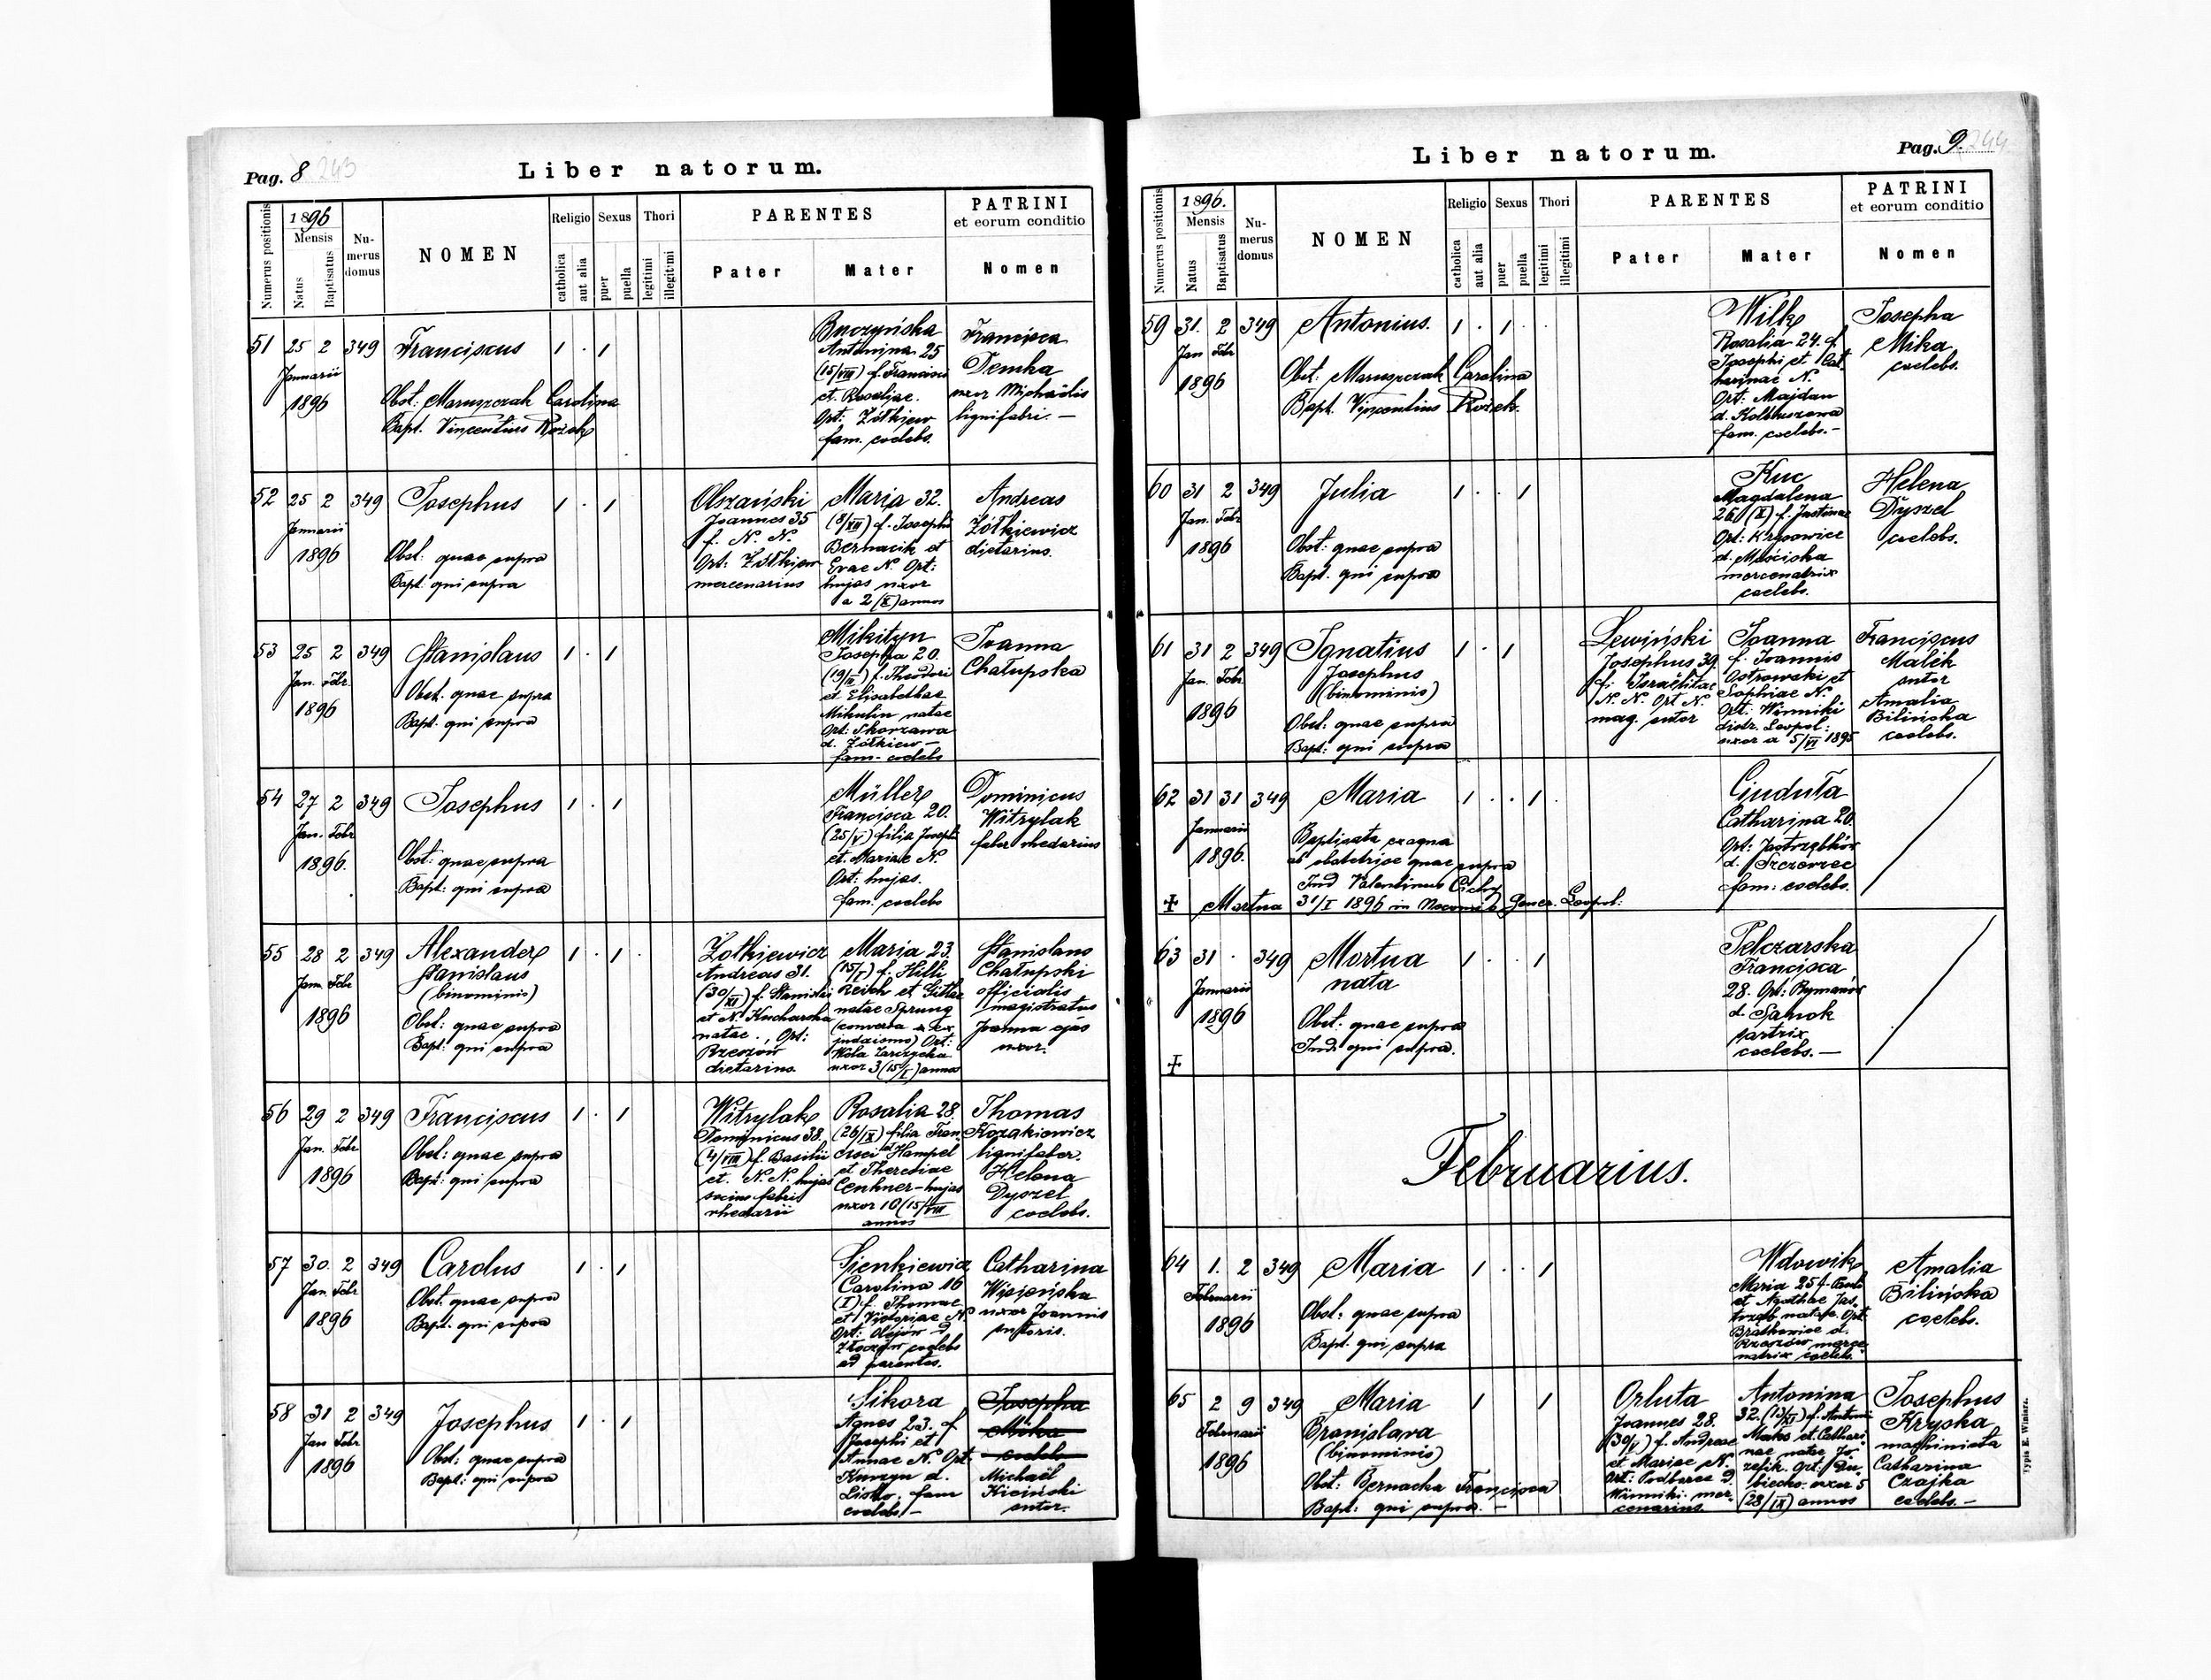 Pag. 8 243
Liber natorum.
Numerus positionis
1896
Mensis
Natus
Baptisatus
Nu-
merus
domus
NOMEN
Religio
catholica
aut alia
Sexus
puer
puella
Thori
legitimi
illegitimi
PARENTES
Pater
Mater
PATRINI
et eorum conditio
Nomen
51 25 2 349 Franciscus 1 . 1
Januarii
1896
Obst: Maruszczak Carolina
Bapt. Vincentius Rożek
Buczyńska
Antonina 25
(15/VIII) f. Francisci
et Rosaliae.
Ort: Żółkiew
fam. coelebs.
Francisca
Demka
uxor Michaëlis
lignifabri. —
52 25 2 349 Josephus 1 . 1
Januarii
1896
Obst: quae supra
Bapt. qui supra
Olszański
Joannes 35
f. N. N.
Ort: Żółkiew
mercenarius
Maria 32.
(8/XII) f. Josephi
Bernacik et
Evae N. Ort:
hujas uxor
a 2 (X) annos
Andreas
Żółkiewicz
dietarius.
53 25 2 349 Stanislaus 1 . 1
Jan. Febr.
1896
Obst. quae supra
Bapt. qui supra
Mikityn
Josepha 20.
f. Theodori
et Elisabethae
Mikulin natae
Ort: Skorzawa
d. Żółkiew —
fam. coelebs
Joanna
Chałupska
54 27 2 349 Josephus 1 . 1
Jan. Febr
1896.
Obst: quae supra
Bapt: qui supra
Müller
Francisca 20.
(25/V) filia Josephi
et Mariae N.
Ort: hujas.
fam. coelebs
Dominicus
Witrylak
faber rhedarius
55 28 2 349 Alexander 1 . 1 .
Jan. Febr
1896
Stanislaus
(binominis)
Obst: quae supra
Bapt: qui supra
Żołkiewicz
Andreas 31.
(30/XI) f. Stanislai
et N. Kucharska
natae., Ort:
Rzeszów
dietarius
Maria 23.
(15/I) f. Hilli
Reich et Gittae
natae Sprung
(conversa ex
judaismo) Ort:
Wola Zarczycka
uxor 3 (15/I) annos
Stanislaus
Chałupski
officialis
magistratus
Joanna ejus
uxor.
56 29 2 349 Franciscus 1 . 1
Jan. Febr
1896
Obst: quae supra
Bapt: qui supra
Witrylak
Dominicus 38.
(4/VIII) f. Basilii
et. N. N. hujas
socius fabri
rhedarii
Rosalia 28.
(26/IX) filia Fran-
cisci Hampel
et Theresiae
Cenkner - hujas
uxor 10 (15/VIII
annos
Thomas
Kozakiewicz
lignifaber.
Helena
Dyszel
coelebs.
57 30. 2 349 Carolus 1 . 1
Jan. Febr
1896
Obst. quae supra
Bapt: qui supra
Sienkiewicz
Carolina 16
(I) f. Thomae
et Victoriae N.
Ort: Olejów d.
Złoczów coelebs
ad parentes.
Catharina
Wisjeńska
uxor Joannis
sutoris.
58 31 2 349 Josephus 1 . 1
Jan Febr
1896
Obst: quae supra
Bapt: qui supra
Sikora
Agnes 23. f.
Josephi et
Annae N. Ort.
d.
Lisko. fam
coelebs. —
Josepha
Mika
coelebs
Michaël
Kiciński
sutor.
Pag. 9. 244
Liber natorum.
Numerus positionis
1896.
Mensis
Natus
Baptisatus
Nu-
merus
domus
NOMEN
Religio
catholica
aut alia
Sexus
puer
puella
Thori
legitimi
illegitimi
PARENTES
Pater
Mater
PATRINI
et eorum conditio
Nomen
59 31. 2 349 Antonius. 1 . 1 .
Jan Febr
1896
Obst: Maruszczak Carolina
Bapt. Vincentius Rożek.
Wilk
Rosalia 24. f.
Josephi et Cat-
harinae N.
Ort: Majdan
d. Kolbuszowa
fam. coelebs. —
Josepha
Mika
coelebs.
60 31 2 349 Julia 1 . . 1
Jan. Febr
1896
Obst: quae supra
Bapt. qui supra
Kuc
Magdalena
26 (X) f. Justinae
Ort: Krysowice
d. Mościska
mercenatrix
coelebs.
Helena
Dyszel
coelebs.
61 31 2 349 Ignatius 1 . 1
Jan. Febr.
1896
Josephus
(binominis)
Obst: quae supra
Bapt: qui supra
Lewiński
Josephus 39.
f. Israëlitae
N. N. Ort N.
mag. sutor
Joanna
f. Joannis
Ostrowski et
Sophiae N.
Ort: Winniki
distr. Leopol:
uxor a 5/VI 1895
Franciscus
Malik
sutor
Amalia
Bilińska
coelebs.
62 31 31 349 Maria 1 . . 1 .
Januarii
1896.
Baptisata ex aqua
ab obstetrice quae supra
Ind Valentinus Cichy
✝ Mortua 31/I 1896 in Gener. Leopol:
Ginduta
Catharina 20.
Ort: Jastrzębków
d. Szczerzec
fam: coelebs.
63 31 . 349 Mortua 1 . . 1
Januarii
1896
nata
Obst: quae supra
Ind: qui supra.
✝
Pelczarska
Francisca
28. Ort: Rymanów
d. Sanok
sartrix
coelebs. —
Februarius.
64 1. 2 349 Maria 1 . . 1
Februarii
1896
Obst: quae supra
Bapt. qui supra
Wdowik
Maria 25 f. Pauli
et Agathae Jas-
trząb natae. Ort.
Bratkowice d.
Rzeszów merce-
natrix coelebs.
Amalia
Bilińska
coelebs.
65 2 9 349 Maria 1 1
Februarii
1896
Bronislava
(binominis)
Obst: Bernacka Francisca
Bapt: qui supra. —
Orluta
Joannes 28.
(30/V) f. Andreae
et Mariae N.
Ort: Podborce d.
Winniki. mer-
cenarius.
Antonina
32. (13/XI) f. Antonii
et Cathari-
nae natae
Ort:
uxor 5
(28/IX) annos
Josephus
Kryska
machinista
Catharina
Czajka
coelebs. —
Typis E. Winiarz.